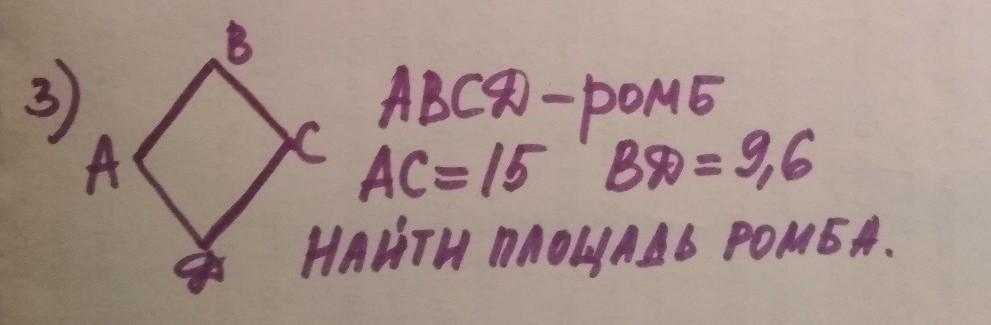 3)
B
A
C
Д
ABCД - ромб
AC = 15 BД = 9,6
НАЙТИ ПЛОЩАДЬ РОМБА.